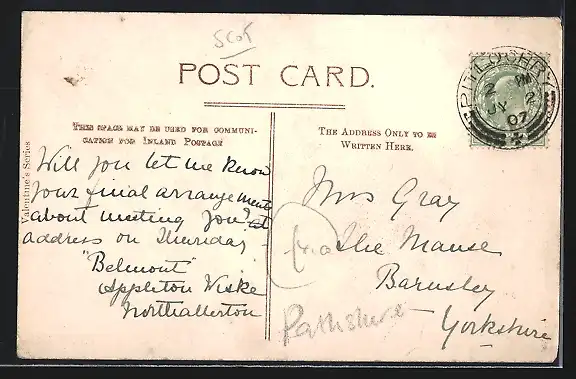 Scot
POST CARD.
THIS SPACE MAY BE USED FOR COMMUNI-
CATION FOR INLAND POSTAGE
THE ADDRESS ONLY TO BE
WRITTEN HERE.
Valentine's Series
PITLOCHRY
2 PM
JY 2
07
Will you let me know
your final arrangements
about meeting you? at
address on Thursday -
"Belmont"
Appleton Wiske
Northallerton
Mrs Gray
The Manse
Barnsley
Yorkshire
Pathshire